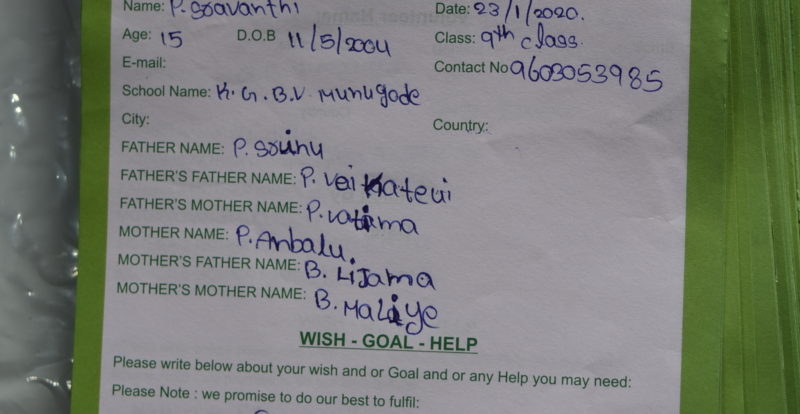 Name: P. Sravanthi Date: 23/1/2020.
Age: 15 D.O.B 11/5/2004 Class: 9th class.
E-mail: Contact No 9603053985
School Name: K. G. B. V Munugode
City: Country:
FATHER NAME: P. Srinu
FATHER'S FATHER NAME: P.
FATHER'S MOTHER NAME: P.
MOTHER NAME: P. Anbalu.
MOTHER'S FATHER NAME: B. Lijama
MOTHER'S MOTHER NAME: B. Maliye
WISH - GOAL - HELP
Please write below about your wish and or Goal and or any Help you may need:
Please Note : we promise to do our best to fulfil: